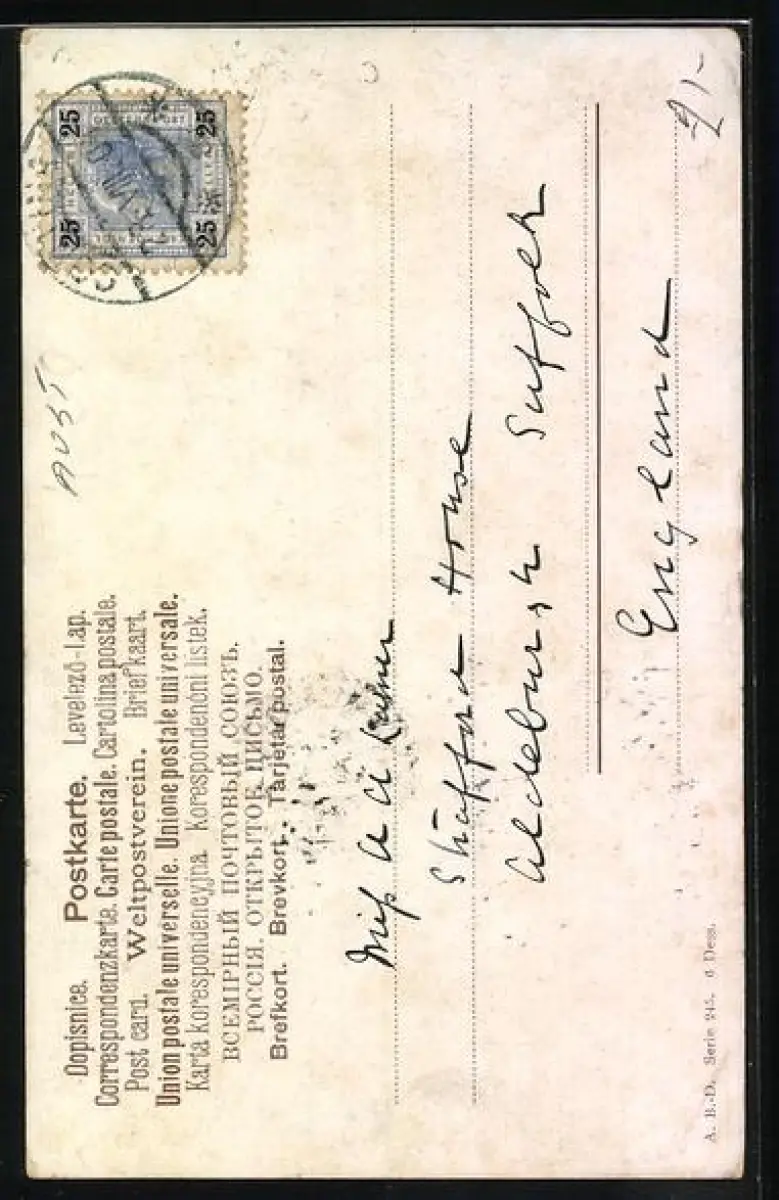 Dopisnice. Postkarte. Levelező-Lap.
Correspondenzkarte. Carte postale. Cartolina postale.
Post card. Weltpostverein. Briefkaart.
Union postale universelle. Unione postale universale.
Karta korespondencyjna. Korespondencni listek.
ВСЕМІРНЫЙ ПОЧТОВЫЙ СОЮЗЪ.
РОССІЯ. ОТКРЫТОЕ ПИСЬМО.
Brefkort. Brevkort. Tarjetar postal.
25 25
25 25
AUST
2/-
Miß
House
Aldeburgh Suffolk
England
A. B.-D. Serie 245. 6 Dess.